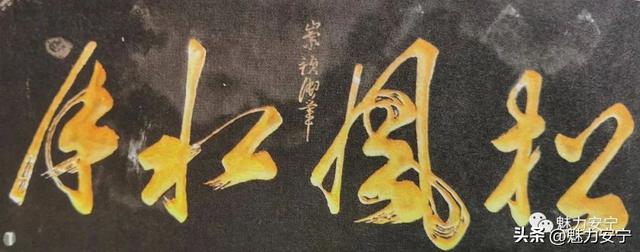 松風水月
崇禎御筆
魅力安宁
头条 @魅力安宁